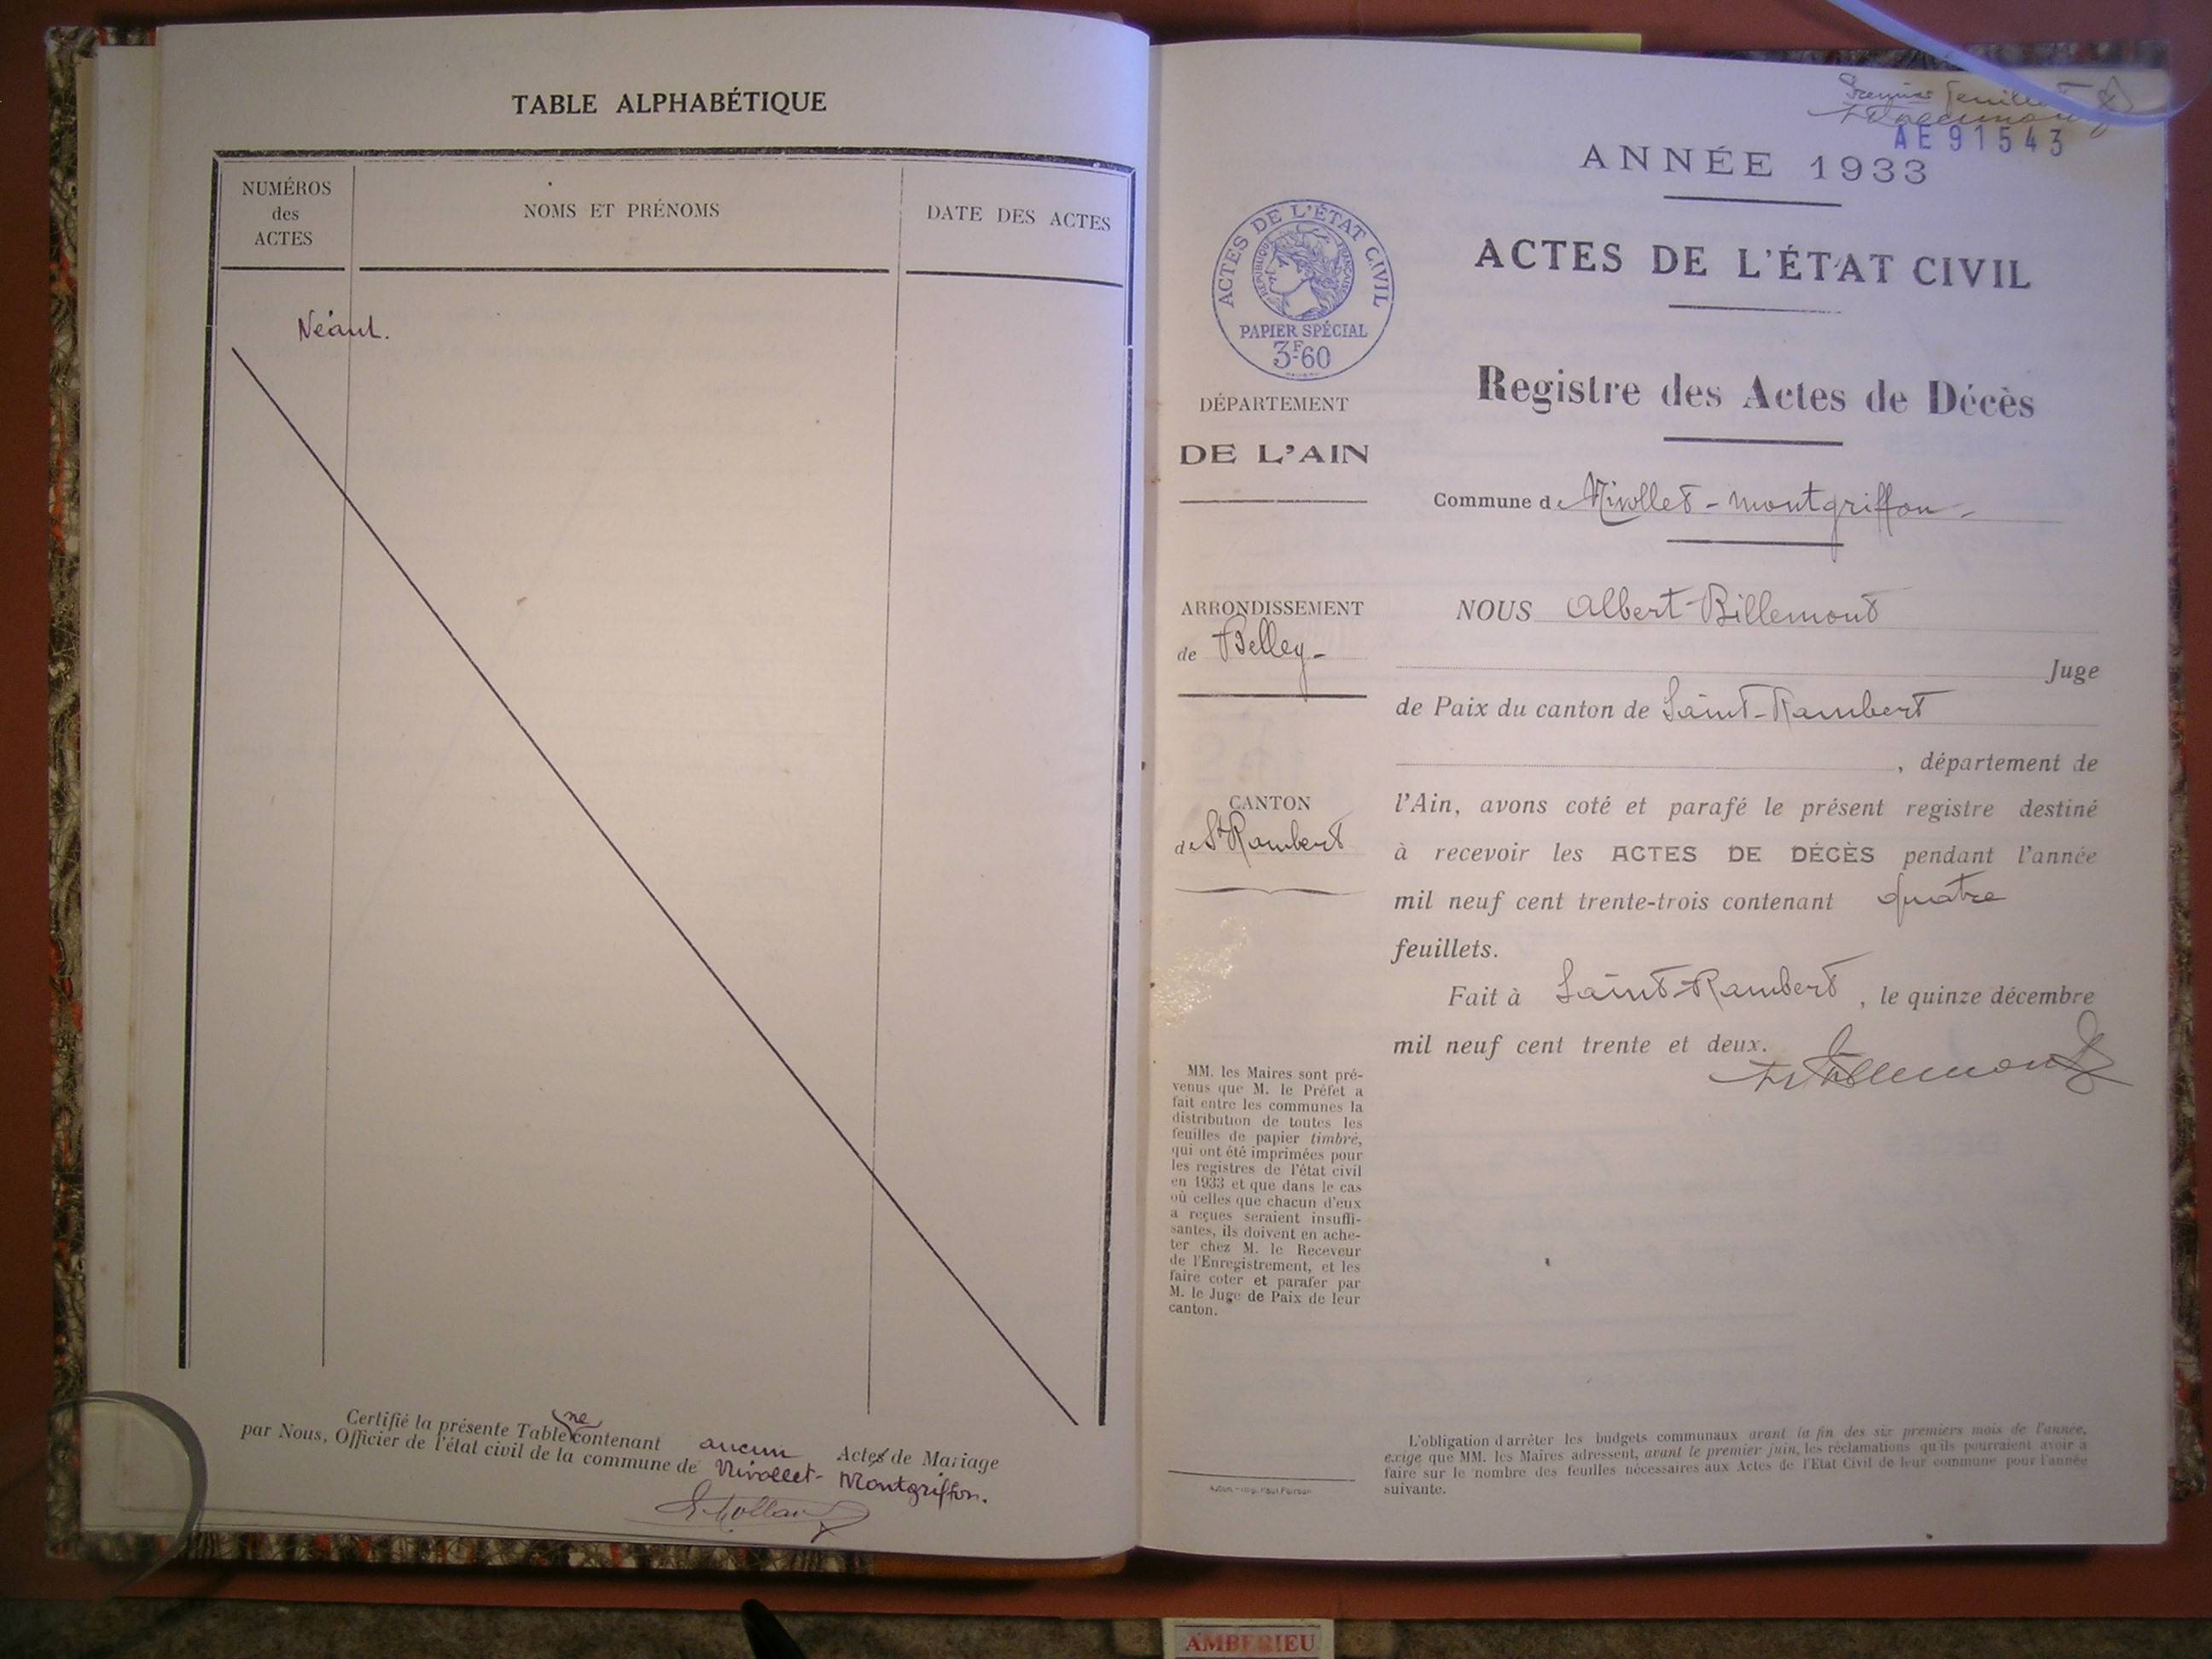 TABLE ALPHABÉTIQUE
NUMÉROS
des
ACTES
NOMS ET PRÉNOMS
DATE DES ACTES
Néant.
Certifié la présente Table ne contenant aucun Actes de Mariage
par Nous, Officier de l'état civil de la commune de Nivollet-Montgriffon.
Premier feuillet
AE91543
ANNÉE 1933
ACTES DE L'ÉTAT CIVIL
RÉPUBLIQUE FRANÇAISE
PAPIER SPÉCIAL
3F60
ACTES DE L'ÉTAT CIVIL
Registre des Actes de Décès
DÉPARTEMENT
DE L'AIN
Commune de Nivollet-Montgriffon-
ARRONDISSEMENT
de Belley-
CANTON
de St Rambert
NOUS Albert Billemont
Juge
de Paix du canton de Saint-Rambert
, département de
l'Ain, avons coté et parafé le présent registre destiné
à recevoir les ACTES DE DÉCÈS pendant l'année
mil neuf cent trente-trois contenant quatre
feuillets.
Fait à Saint-Rambert, le quinze décembre
mil neuf cent trente et deux.
MM. les Maires sont pré-
venus que M. le Préfet a
fait entre les communes la
distribution de toutes les
feuilles de papier timbré,
qui ont été imprimées pour
les registres de l'état civil
en 1933 et que dans le cas
où celles que chacun d'eux
a reçues seraient insuffi-
santes, ils doivent en ache-
ter chez M. le Receveur
de l'Enregistrement, et les
faire coter et parafer par
M. le Juge de Paix de leur
canton.
L'obligation d'arrêter les budgets communaux avant la fin des six premiers mois de l'année,
exige que MM. les Maires adressent, avant le premier juin, les réclamations qu'ils pourraient avoir à
faire sur le nombre des feuilles nécessaires aux Actes de l'Etat Civil de leur commune pour l'année
suivante.
AMBERIEU